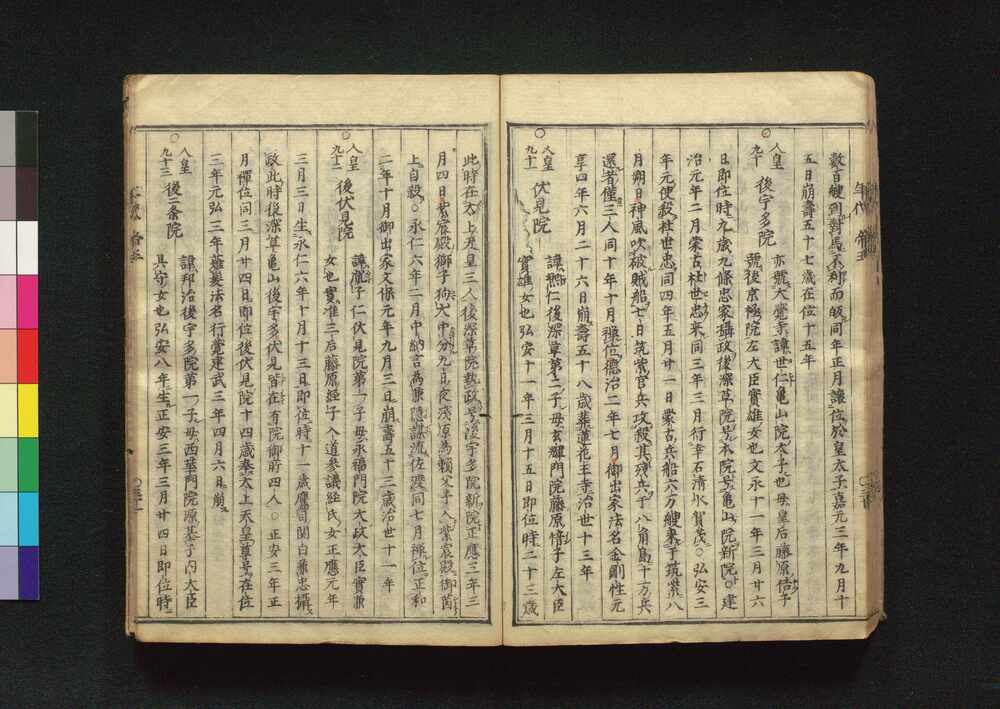 年代 帝王
數百艘到對馬不利而皈同年正月讓位於皇太子嘉元三年九月十
五日崩壽五十七歲在位十五年
○人皇九十 後宇多院 亦號大覺寺諱世仁龜山院太子也母皇后藤原佶子
號後京極院左大臣實雄女也文永十一年三月廿六
日即位時九歲九條忠家攝政後深草院号本院号龜山院新院○建
治元年二月蒙古杜世忠来同三年三月行幸石清水賀茂○弘安三
年元使殺杜世忠同四年五月廿一日蒙古兵船六万艘来于筑紫八
月朔日神風吹破賊船七日筑紫官兵攻殺其残兵于八角島十万兵
還者僅三人同十年十月禪位德治二年七月御出家法名金剛性元
享四年六月二十六日崩壽五十八歲葬蓮花王寺治世十三年
○人皇九十一 伏見院 諱熈仁後深草第二子母玄輝門院藤原愔子左大臣
實雄女也弘安十一年三月十五日即位時二十三歲
此時在太上天皇三人後深草院執政号後宇多院新院正應三年三
月四日紫宸殿御子狗犬中分九日夜浅原為賴父子人紫宸殿御茵
上自殺○永仁六年二月中納言為兼隱謀流佐渡同七月禪位正和
二年十月御出家文保元年九月三日崩壽五十三歲治世十一年
○人皇九十二 後伏見院 諱胤子仁伏見院第一子母永福門院大政大臣實兼
女也實准三后藤原經子入道参議経氏女正應元年
三月三日生永仁六年十月十三日即位時十一歲鷹司関白兼忠攝
政此時後深草龜山後宇多伏見皆在有院御前四人○正安三年正
月禪位同三月廿四日即位後伏見院十四歲奉太上天皇尊号在位
三年元弘三年薙髮法名行覺建武三年四月六日崩
○人皇九十三 後二条院 諱邦治後宇多院第一子母西華門院源基子内大臣
具守女也弘安八年生正安三年三月廿四日即位時